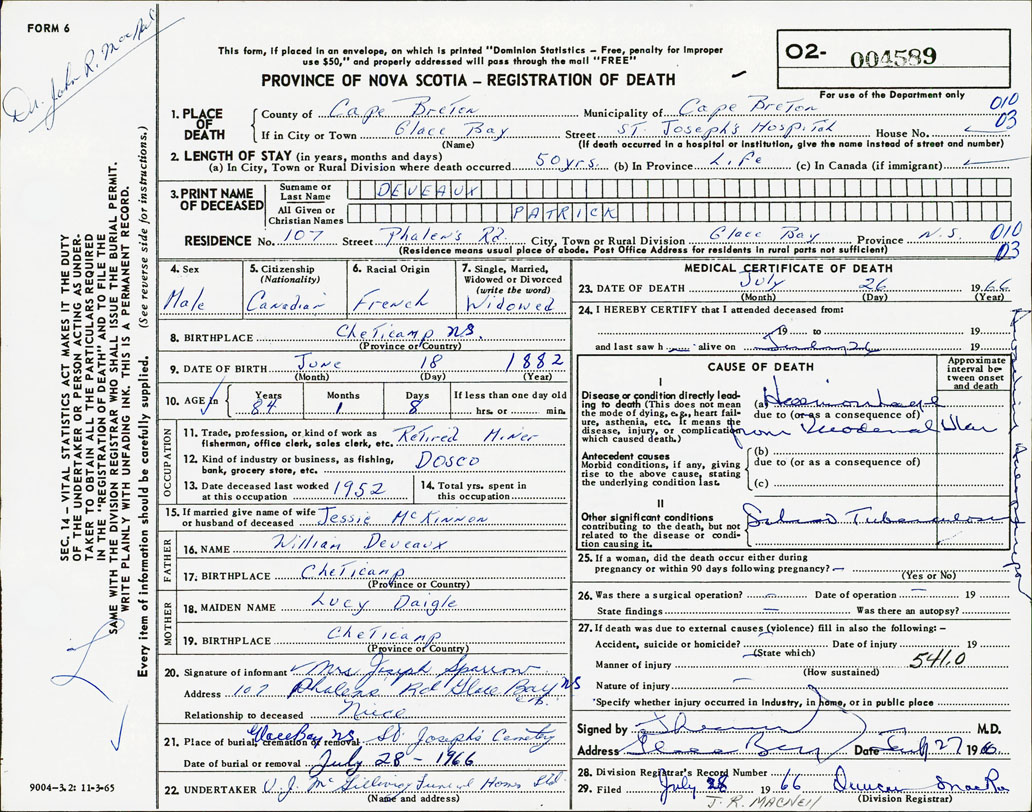 FORM 6
Dr. John R. MacNeil
This form, if placed in an envelope, on which is printed "Dominion Statistics – Free, penalty for improper
use $50," and properly addressed will pass through the mail "FREE"
PROVINCE OF NOVA SCOTIA – REGISTRATION OF DEATH
02- 004589
For use of the Department only
010
03
1. PLACE OF DEATH
County of Cape Breton Municipality of Cape Breton
If in City or Town Glace Bay Street St. Joseph's Hospital House No.
(Name) (If death occurred in a hospital or institution, give the name instead of street and number)
2. LENGTH OF STAY (in years, months and days)
(a) In City, Town or Rural Division where death occurred 50 yrs. (b) In Province Life (c) In Canada (if immigrant)
3. PRINT NAME OF DECEASED
Surname or Last Name DEVEAUX
All Given or Christian Names PATRICK
RESIDENCE No. 107 Street Phalen's Rd. City, Town or Rural Division Glace Bay Province N.S.
(Residence means usual place of abode. Post Office Address for residents in rural parts not sufficient)
010
03
4. Sex Male
5. Citizenship (Nationality) Canadian
6. Racial Origin French
7. Single, Married, Widowed or Divorced (write the word) Widowed
8. BIRTHPLACE Cheticamp N.S.
(Province or Country)
9. DATE OF BIRTH June 18 1882
(Month) (Day) (Year)
10. AGE Years 84 Months 1 Days 8 If less than one day old hrs. or min.
OCCUPATION
11. Trade, profession, or kind of work as fisherman, office clerk, sales clerk, etc. Retired Miner
12. Kind of industry or business, as fishing, bank, grocery store, etc. DOSCO
13. Date deceased last worked at this occupation 1952
14. Total yrs. spent in this occupation
15. If married give name of wife or husband of deceased Jessie McKinnon
FATHER
16. NAME William Deveaux
17. BIRTHPLACE Cheticamp
(Province or Country)
MOTHER
18. MAIDEN NAME Lucy Daigle
19. BIRTHPLACE Cheticamp
(Province or Country)
20. Signature of informant Mrs Joseph Sparrow
Address 107 Phalens Rd Glace Bay NS
C.B.
Relationship to deceased Niece
21. Place of burial, cremation or removal Glace Bay NS St. Josephs Cemetry
Date of burial or removal July 28 – 1966
22. UNDERTAKER V. J. McGillivray Funeral Home Ltd
(Name and address)
MEDICAL CERTIFICATE OF DEATH
23. DATE OF DEATH July 26 1966
(Month) (Day) (Year)
24. I HEREBY CERTIFY that I attended deceased from:
19 to 19
and last saw h alive on 26 19
CAUSE OF DEATH
Approximate interval between onset and death
I
Disease or condition directly leading to death (This does not mean the mode of dying, e.g., heart failure, asthenia, etc. It means the disease, injury, or complication which caused death.)
(a) Haemorrhage
due to (or as a consequence of)
from Duodenal Ulcer
Antecedent causes
Morbid conditions, if any, giving rise to the above cause, stating the underlying condition last.
(b)
due to (or as a consequence of)
(c)
II
Other significant conditions contributing to the death, but not related to the disease or condition causing it.
Tuberculosis
25. If a woman, did the death occur either during pregnancy or within 90 days following pregnancy? –
(Yes or No)
26. Was there a surgical operation? – Date of operation – 19
State findings – Was there an autopsy?
27. If death was due to external causes (violence) fill in also the following: –
Accident, suicide or homicide? Date of injury 19
(State which)
Manner of injury 541.0
(How sustained)
Nature of injury
*Specify whether injury occurred in Industry, in home, or in public place
Signed by M.D.
Address Glace Bay Date July 27 1966
28. Division Registrar's Record Number
29. Filed July 28 1966 Duncan MacRae
J. R. MACNEIL (Division Registrar)
SEC. 14 – VITAL STATISTICS ACT MAKES IT THE DUTY
OF THE UNDERTAKER OR PERSON ACTING AS UNDER-
TAKER TO OBTAIN ALL THE PARTICULARS REQUIRED
IN THE "REGISTRATION OF DEATH" AND TO FILE THE
SAME WITH THE DIVISION REGISTRAR WHO SHALL ISSUE THE BURIAL PERMIT.
WRITE PLAINLY WITH UNFADING INK. THIS IS A PERMANENT RECORD.
Every item of information should be carefully supplied. (See reverse side for instructions.)
9004-3.2: 11-3-65